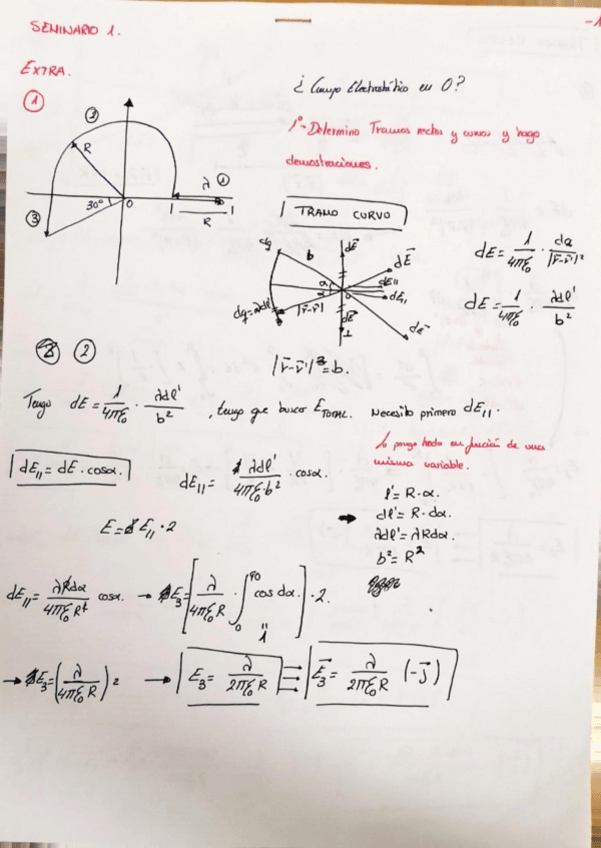 SEMINARIO 1.
-1
EXTRA.
¿ Campo Electrostático en O?
①
1º-Determino Tramos rectos y curvos y hago
demostraciones.
②
R
λ ①
30º O
③
R
TRAMO CURVO
dq b dE⃗ dE⃗
dE = 1/4πξ₀ · dq/|r⃗-r⃗'|²
dE∥
α
α
O dE∥
dq=λdl' |r⃗-r⃗'| dE⃗ ⊥ dE⃗
dE = 1/4πξ₀ · λdl'/b²
②
|r⃗-r⃗'|²=b.
Tengo dE = 1/4πξ₀ · λdl'/b² , tengo que buscar E_TOTAL. Necesito primero dE∥.
Lo pongo todo en función de una
misma variable.
dE∥ = dE · cosα.
dE∥ = λdl'/4πξ₀·b² · cosα
l' = R·α.
dl' = R·dα.
λdl' = λRdα.
b² = R²
E = E∥ · 2
dE∥ = λRdα/4πξ₀R² cosα. → E₃ = [λ/4πξ₀R · ∫₀⁹⁰ cosdα.] · 2.
1
→ E₃ = (λ/4πξ₀R) 2 → E₃ = λ/2πξ₀R ⇒ E⃗₃ = λ/2πξ₀R (-j⃗)